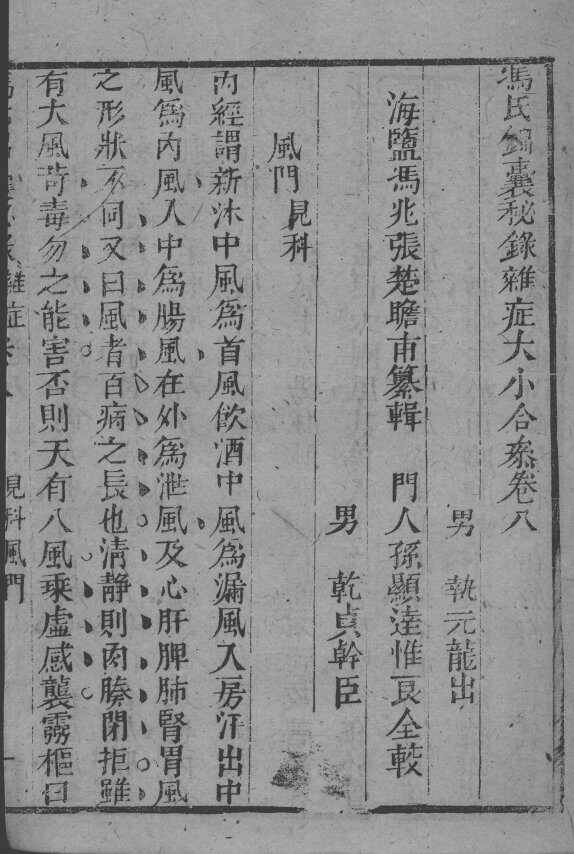 馮氏錦囊秘錄雜症大小合叅卷八
男　執元龍出
海鹽馮兆張楚瞻甫纂輯　門人孫顯達惟良全較
男　乾貞幹臣
風門見科
內經謂新沐中風爲首風飲酒中風爲漏風入房汗出中
風爲內風入中爲腸風在外爲泄風及心肝脾肺腎胃風
之形狀不同又曰風者百病之長也清靜則肉腠閉拒雖
有大風苛毒勿之能害否則天有八風乘虛感襲靈樞曰
雜症卷八　見科風門　一